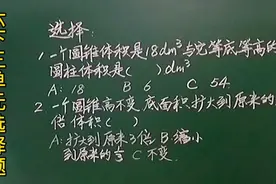 六下三单元选择题
选择:
1.一个圆锥体积是18dm³与它等底等高的
圆柱体积是( )dm³
A: 18 B 6 C 54
2.一个圆锥高不变,底面积扩大到原来的
倍 体积( )
A:扩大到原来3倍 B:缩小
到原来的1/3 C 不变